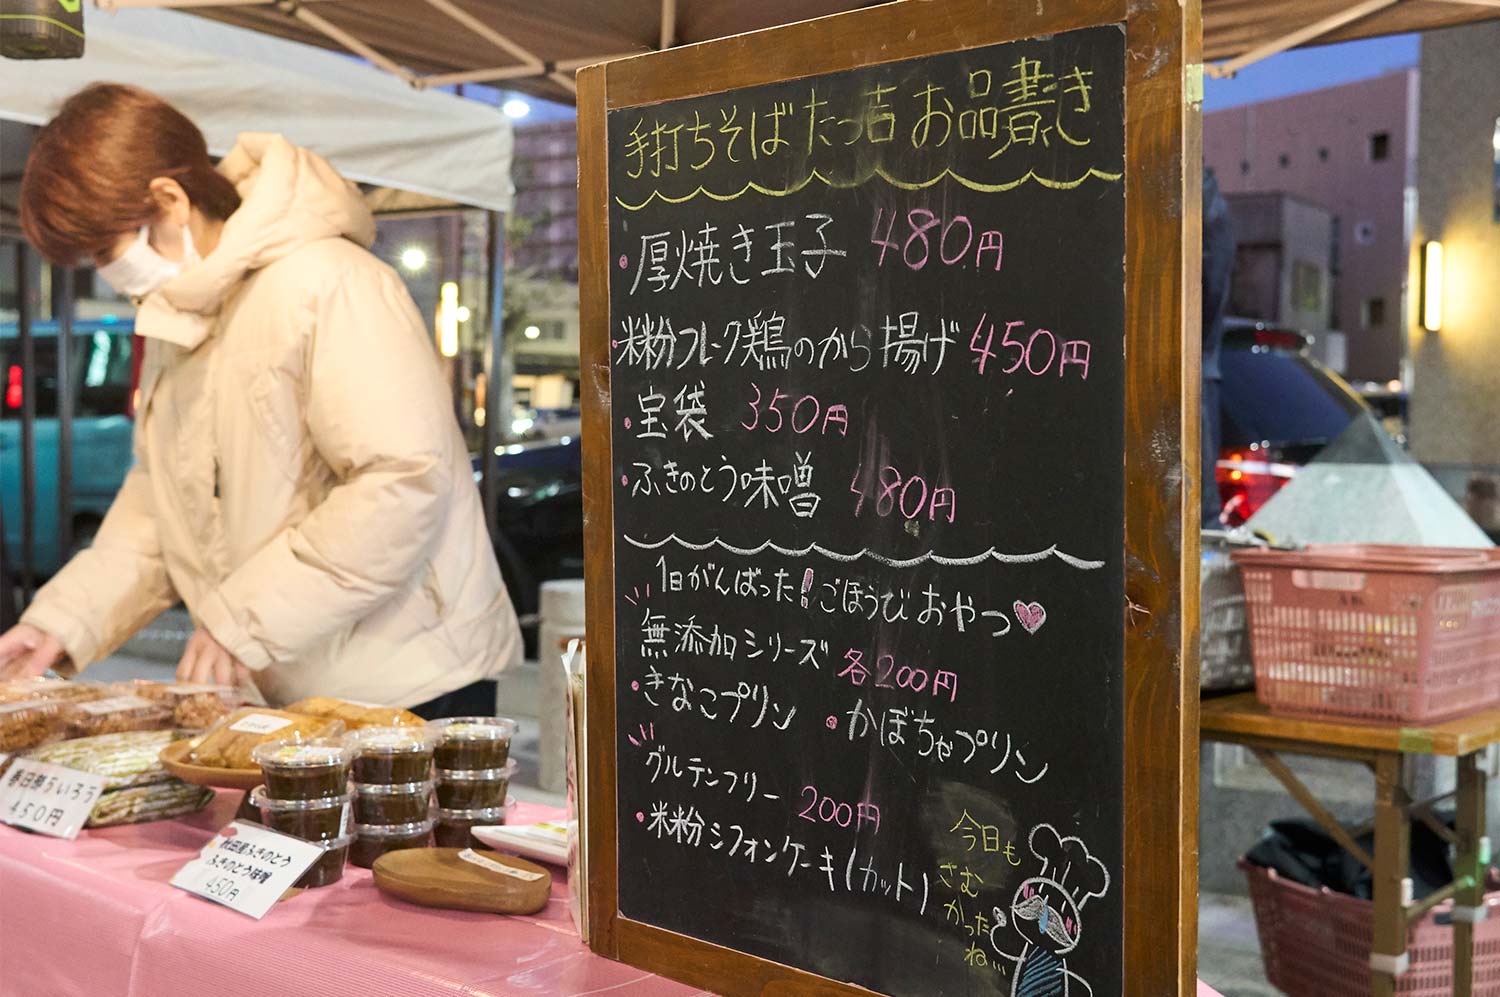 手打ちそば たっ吉 お品書き
・厚焼き玉子 480円
・米粉フレーク鶏のから揚げ 450円
・宝袋 350円
・ふきのとう味噌 480円
1日がんばった!ごほうびおやつ♥
無添加シリーズ 各200円
・きなこプリン ・かぼちゃプリン
グルテンフリー 200円
・米粉シフォンケーキ(カット)
今日も
さむ
かった
ね…
春日部ういろう
450円
秋田産ふきのとう
ふきのとう味噌
450円